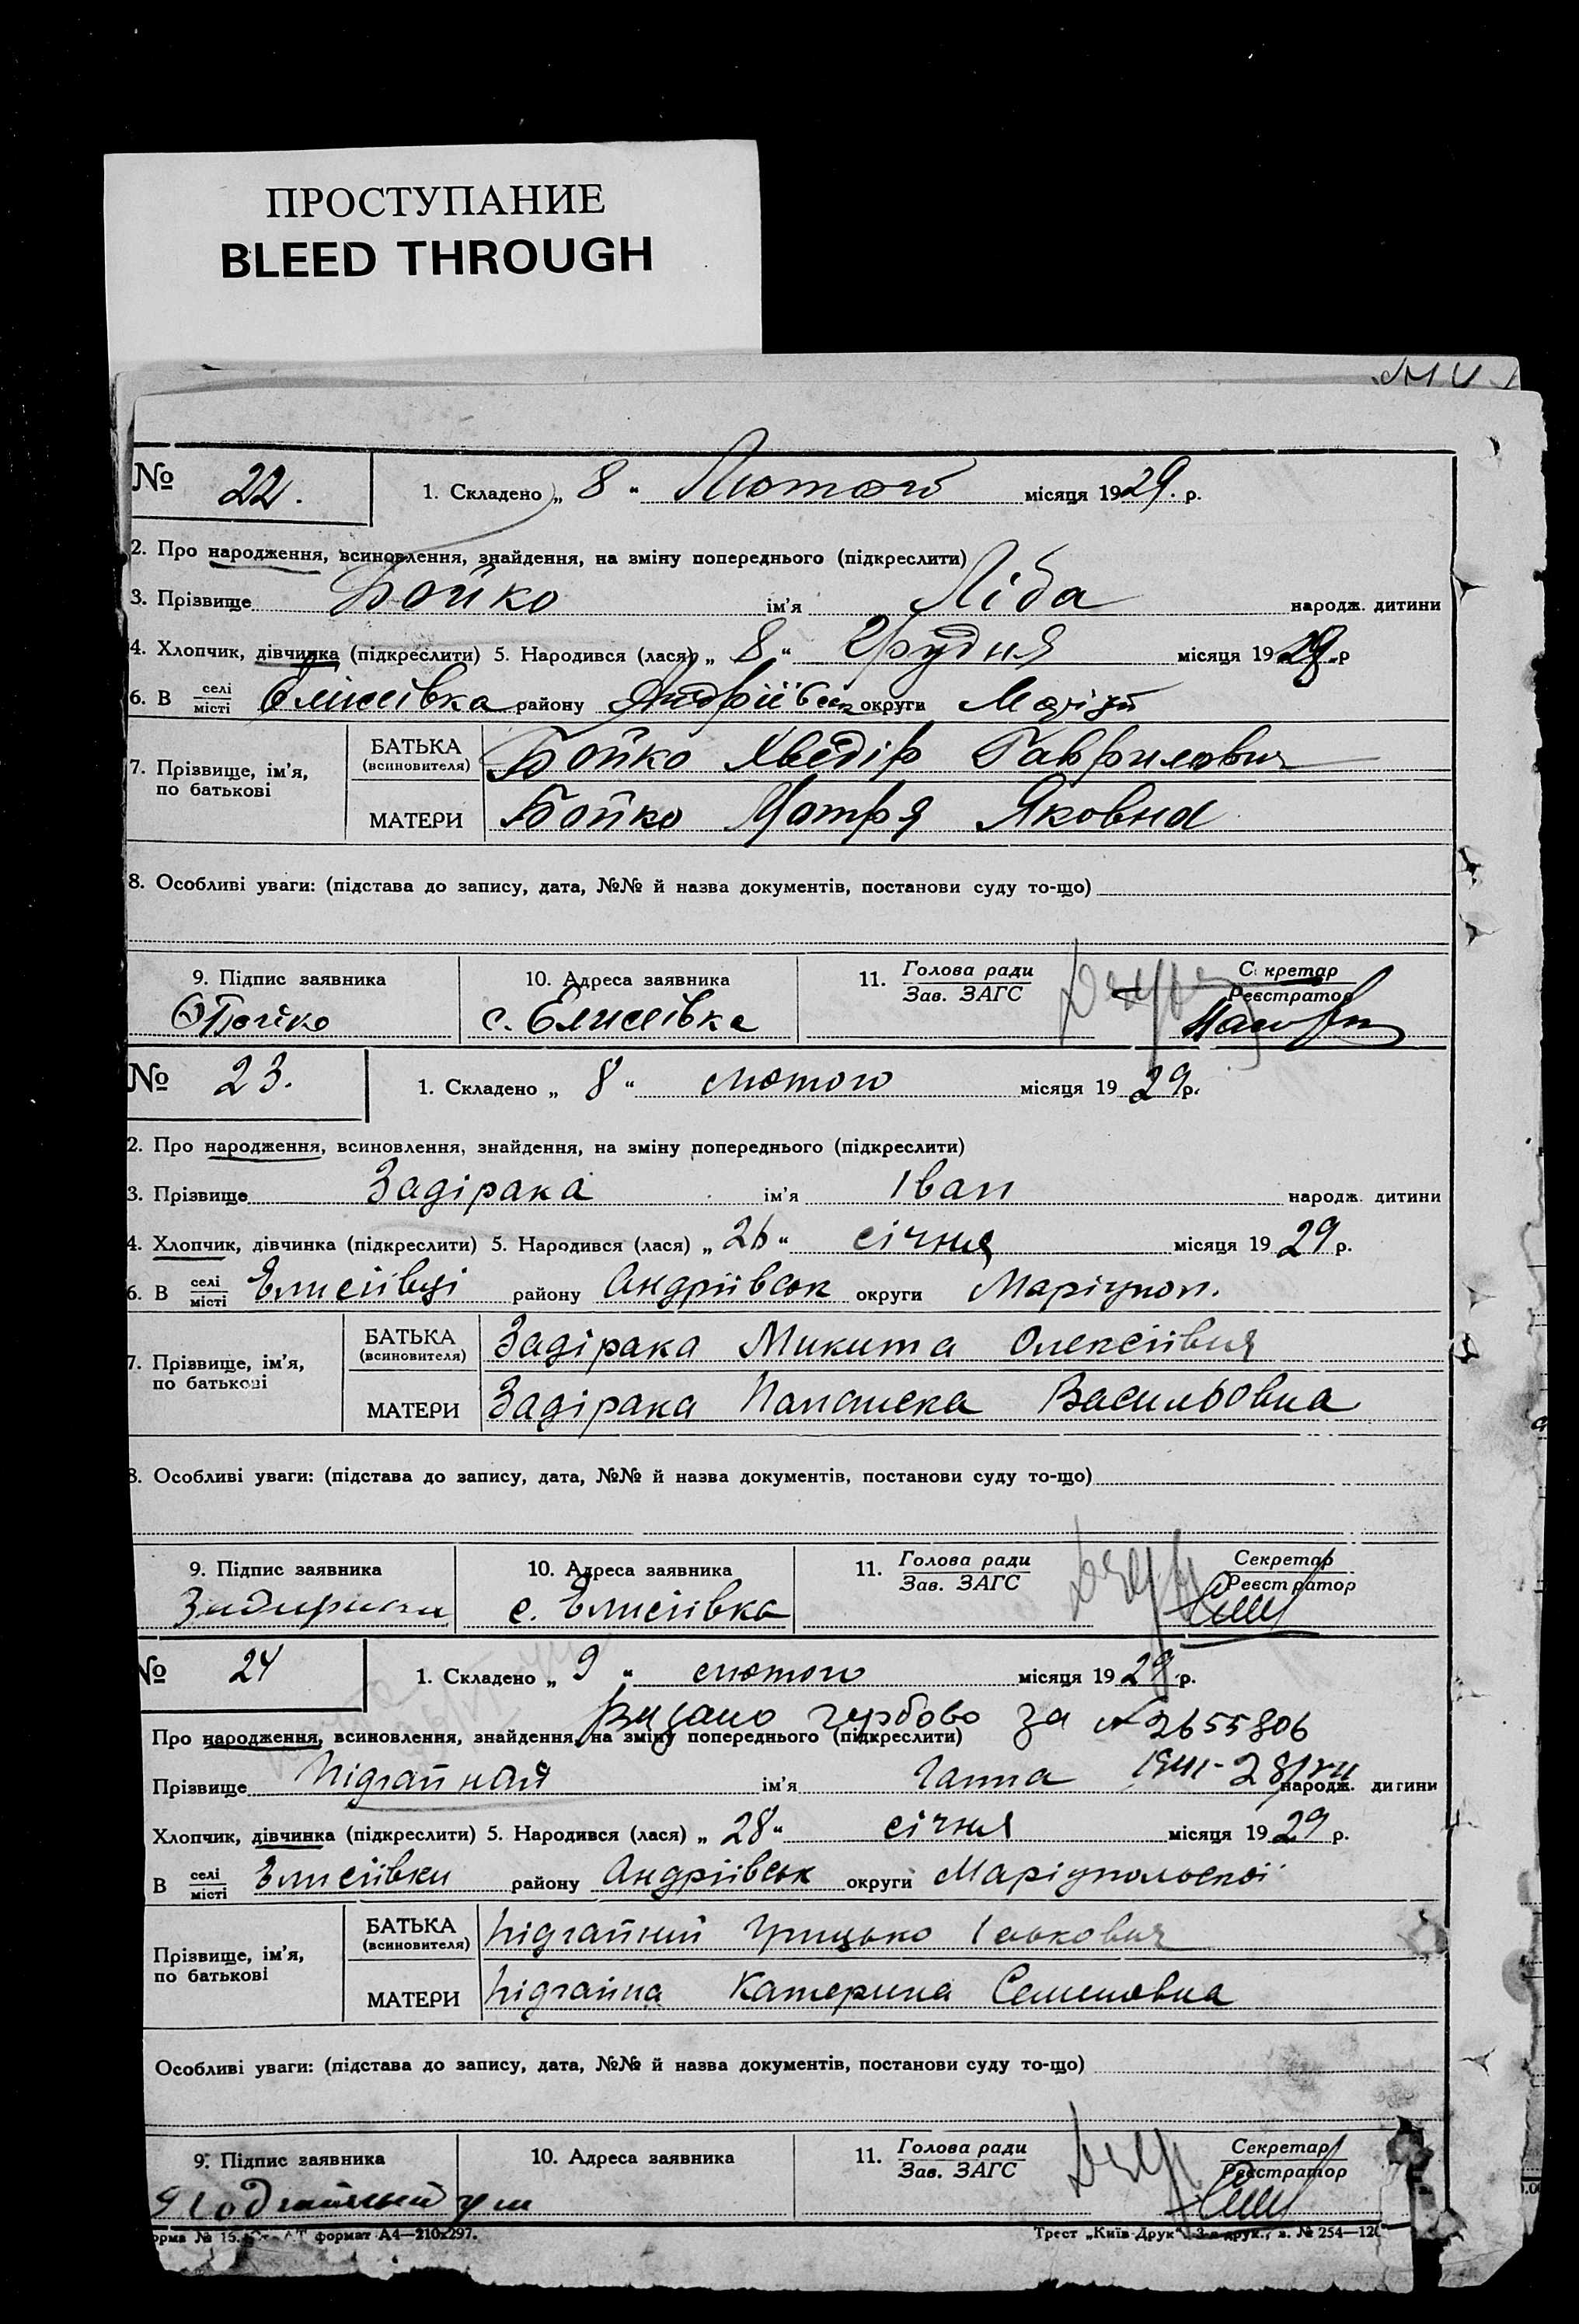 ПРОСТУПАНИЕ
BLEED THROUGH
№ 22. 1. Складено „ 8 “ Лютого місяця 1929. р.
2. Про народження, всиновлення, знайдення, на зміну попереднього (підкреслити)
3. Прізвище Бойко ім’я Ліба народж. дитини
4. Хлопчик, дівчинка (підкреслити) 5. Народився (лася) „ 8 “ Грудня місяця 19 р
6. В селі місті Єлисіївка району Андріївськ округи Маріуп
7. Прізвище, ім’я, по батькові
БАТЬКА (всиновителя) Бойко Хведір Гаврилович
МАТЕРИ Бойко Мотря Яковна
8. Особливі уваги: (підстава до запису, дата, №№ й назва документів, постанови суду то-що)
9. Підпис заявника 10. Адреса заявника 11. Голова ради Секретар
Зав. ЗАГС Реєстратор
Бойко с. Єлисіївка
№ 23. 1. Складено „ 8 “ лютого місяця 19 29 р.
2. Про народження, всиновлення, знайдення, на зміну попереднього (підкреслити)
3. Прізвище Задірака ім’я Іван народж. дитини
4. Хлопчик, дівчинка (підкреслити) 5. Народився (лася) „ 26 “ січня місяця 19 29 р.
6. В селі місті Єлисіївці району Андріївськ округи Маріупол.
7. Прізвище, ім’я, по батькові
БАТЬКА (всиновителя) Задірака Микита Олексіївич
МАТЕРИ Задірака Палашека Васильовна
8. Особливі уваги: (підстава до запису, дата, №№ й назва документів, постанови суду то-що)
9. Підпис заявника 10. Адреса заявника 11. Голова ради Секретар
Зав. ЗАГС Реєстратор
Задирака с. Єлисіївка
№ 24 1. Складено „ 9 “ лютого місяця 19 29 р.
Видано гербово за № 2655806
Про народження, всиновлення, знайдення, на зміну попереднього (підкреслити)
Прізвище Підгайная ім’я Ганна народж. дитини
Хлопчик, дівчинка (підкреслити) 5. Народився (лася) „ 28 “ січня місяця 19 29 р.
В селі місті Єлисіївки району Андріївськ округи Маріупольської
Прізвище, ім’я, по батькові
БАТЬКА (всиновителя) Підгайний Грицько Іськович
МАТЕРИ Підгайна Катерина Семеновна
Особливі уваги: (підстава до запису, дата, №№ й назва документів, постанови суду то-що)
9. Підпис заявника 10. Адреса заявника 11. Голова ради Секретар
Зав. ЗАГС Реєстратор
Подгайный
орма № 15. формат А4—210x297. Трест „Київ-Друк“ 3-я друк., з. № 254—12